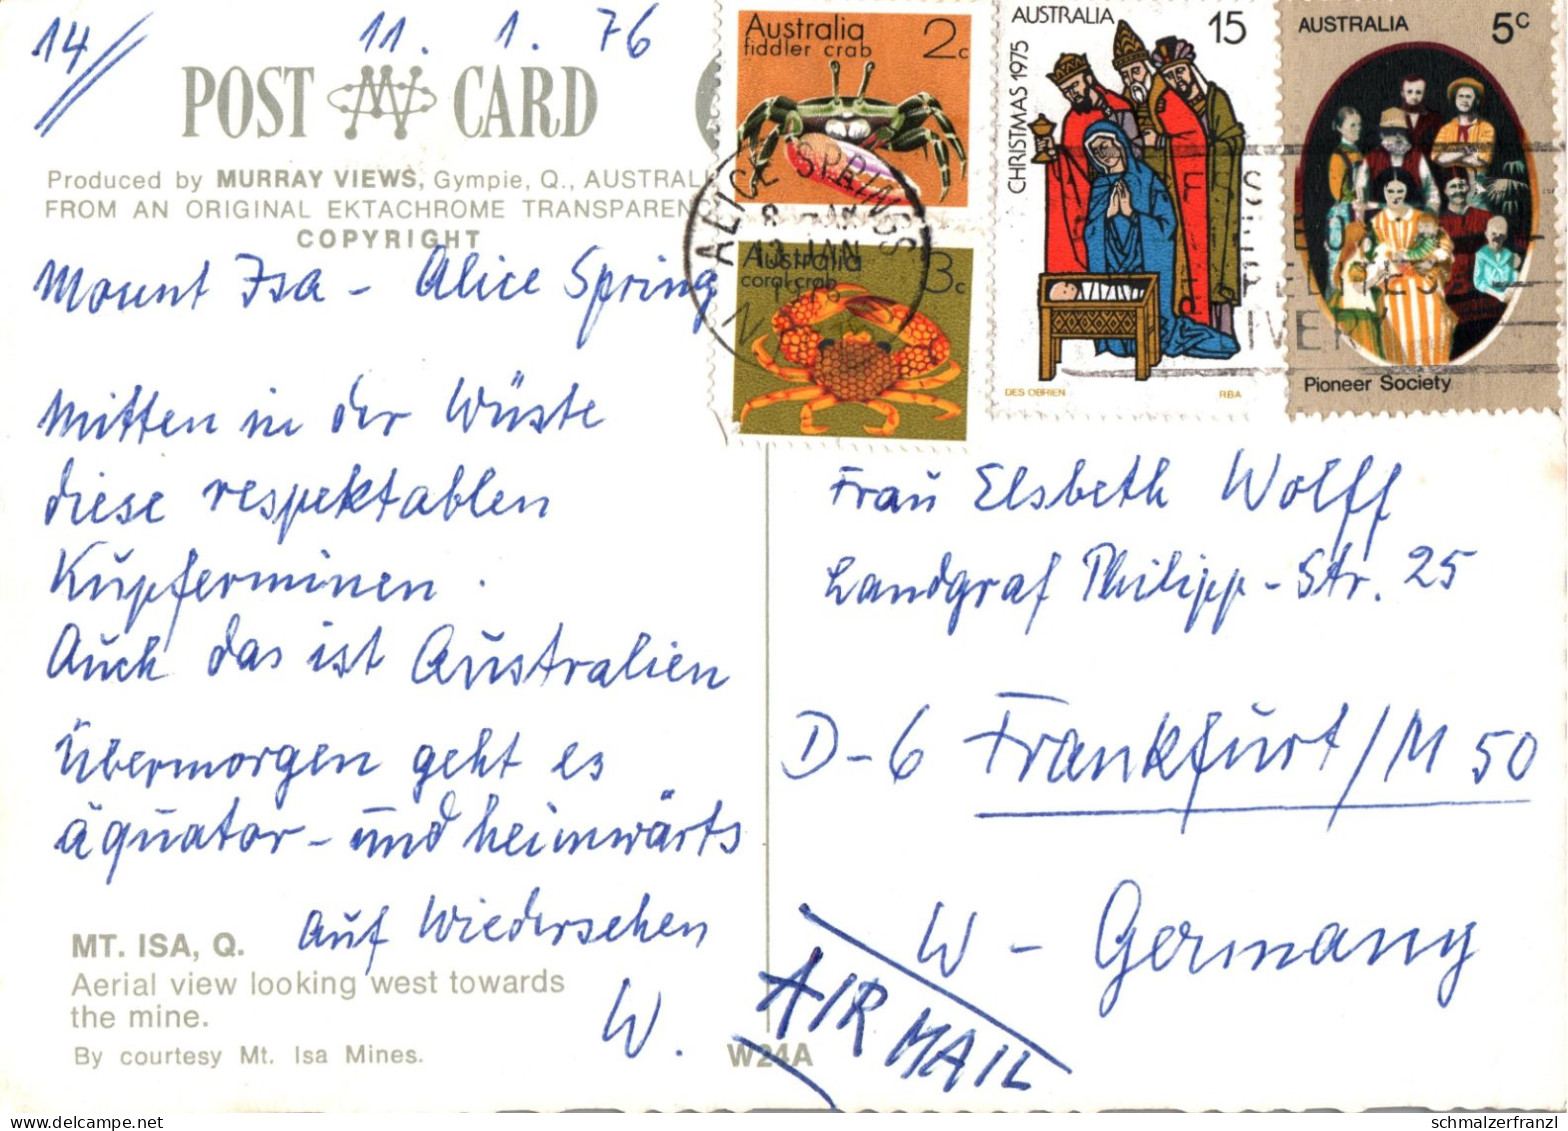 14/ 11. 1. 76
POST CARD
Produced by MURRAY VIEWS, Gympie, Q., AUSTRAL
FROM AN ORIGINAL EKTACHROME TRANSPAREN
COPYRIGHT
Mount Isa - Alice Spring
Mitten in der Wüste
diese respektablen
Kupferminen.
Auch das ist Australien
Übermorgen geht es
äquator- und heimwärts
Auf Wiedersehen
W.
MT. ISA, Q.
Aerial view looking west towards
the mine.
By courtesy Mt. Isa Mines.
W24A
Australia
fiddler crab 2c
Australia
coral crab 3c
ALICE SPRINGS
8 - AM
13 JAN
AUSTRALIA 15
CHRISTMAS 1975
DES OBRIEN RBA
AUSTRALIA 5c
Pioneer Society
Frau Elsbeth Wolff
Landgraf Philipp-Str. 25
D-6 Frankfurt/M 50
W - Germany
AIR MAIL
www.schmalzerfranzl